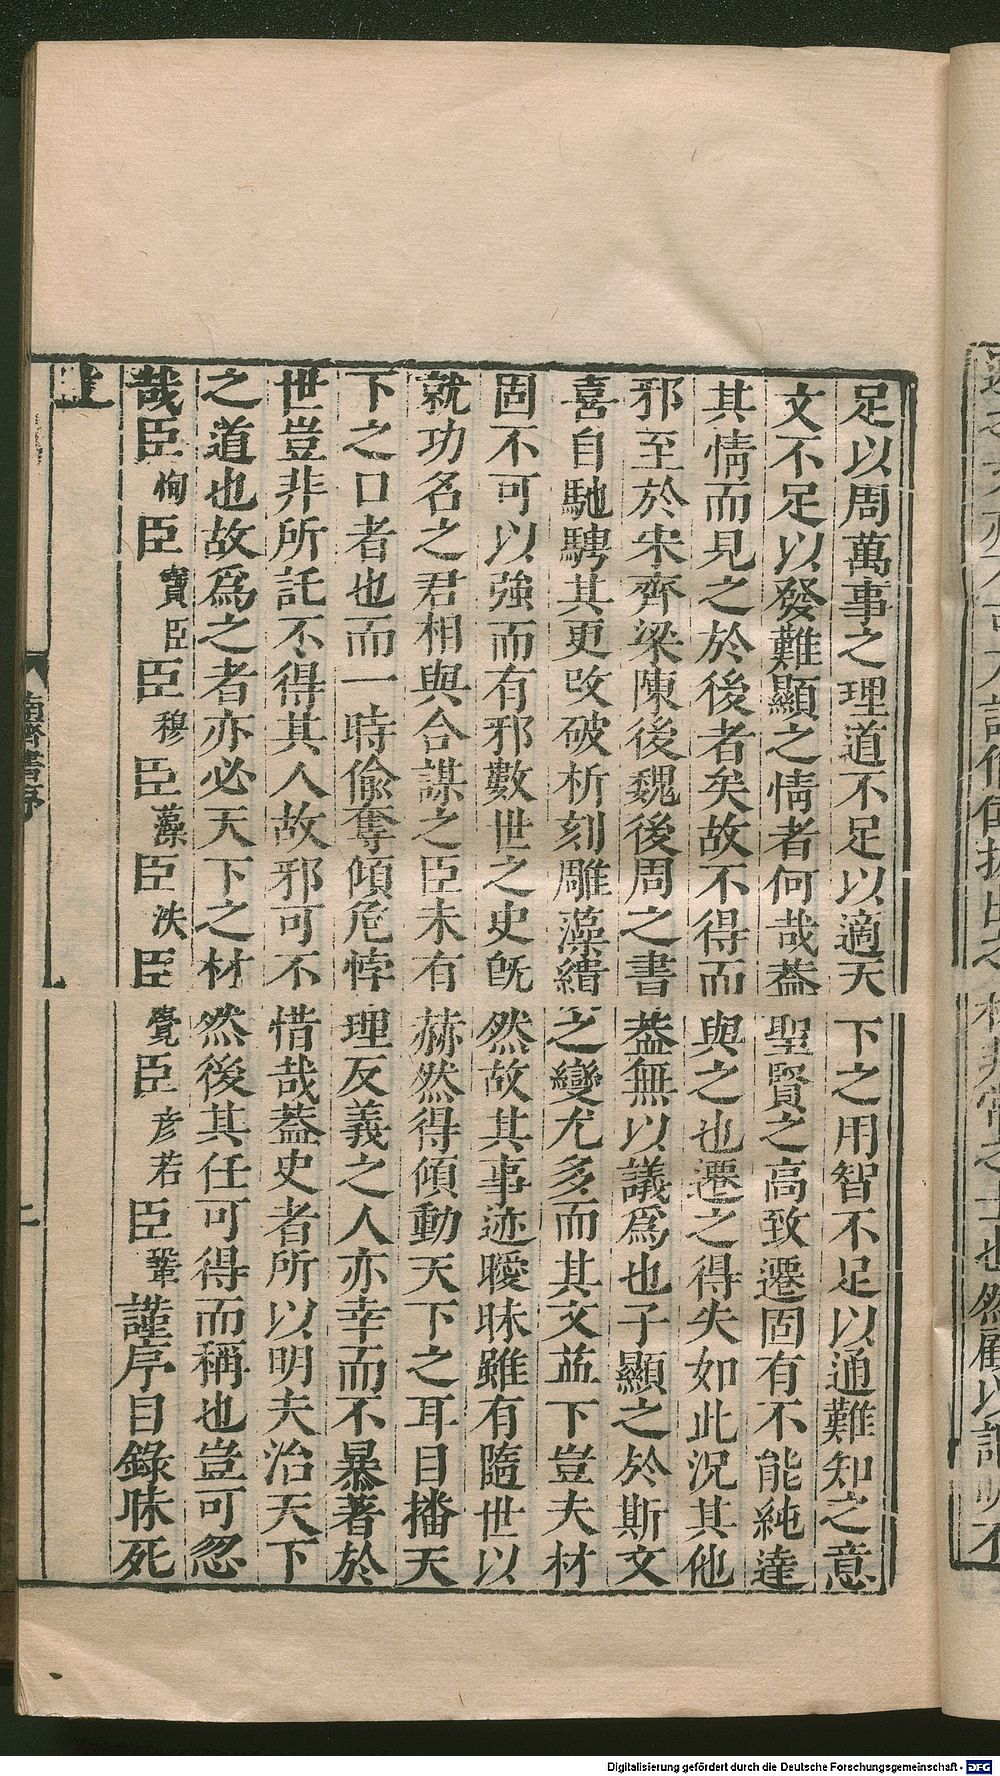 足以周萬事之理道不足以適天下之用智不足以通難知之意
文不足以發難顯之情者何哉葢聖賢之高致遷固有不能純達
其情而見之於後者矣故不得而與之也遷之得失如此況其他
邪至於宋齊梁陳後魏後周之書葢無以議爲也子顯之於斯文
喜自馳騁其更改破析刻雕藻繢之變尤多而其文益下豈夫材
固不可以強而有邪數世之史旣然故其事迹曖昧雖有隨世以
就功名之君相與合謀之臣未有赫然得傾動天下之耳目播天
下之口者也而一時偷奪傾危悖理反義之人亦幸而不暴著於
世豈非所託不得其人故邪可不惜哉葢史者所以明夫治天下
之道也故爲之者亦必天下之材然後其任可得而稱也豈可忽
哉臣恂臣寶臣臣穆臣藻臣洙臣覺臣彦若臣鞏謹序目錄昧死
上
南齊書序
Digitalisierung gefördert durch die Deutsche Forschungsgemeinschaft - DFG